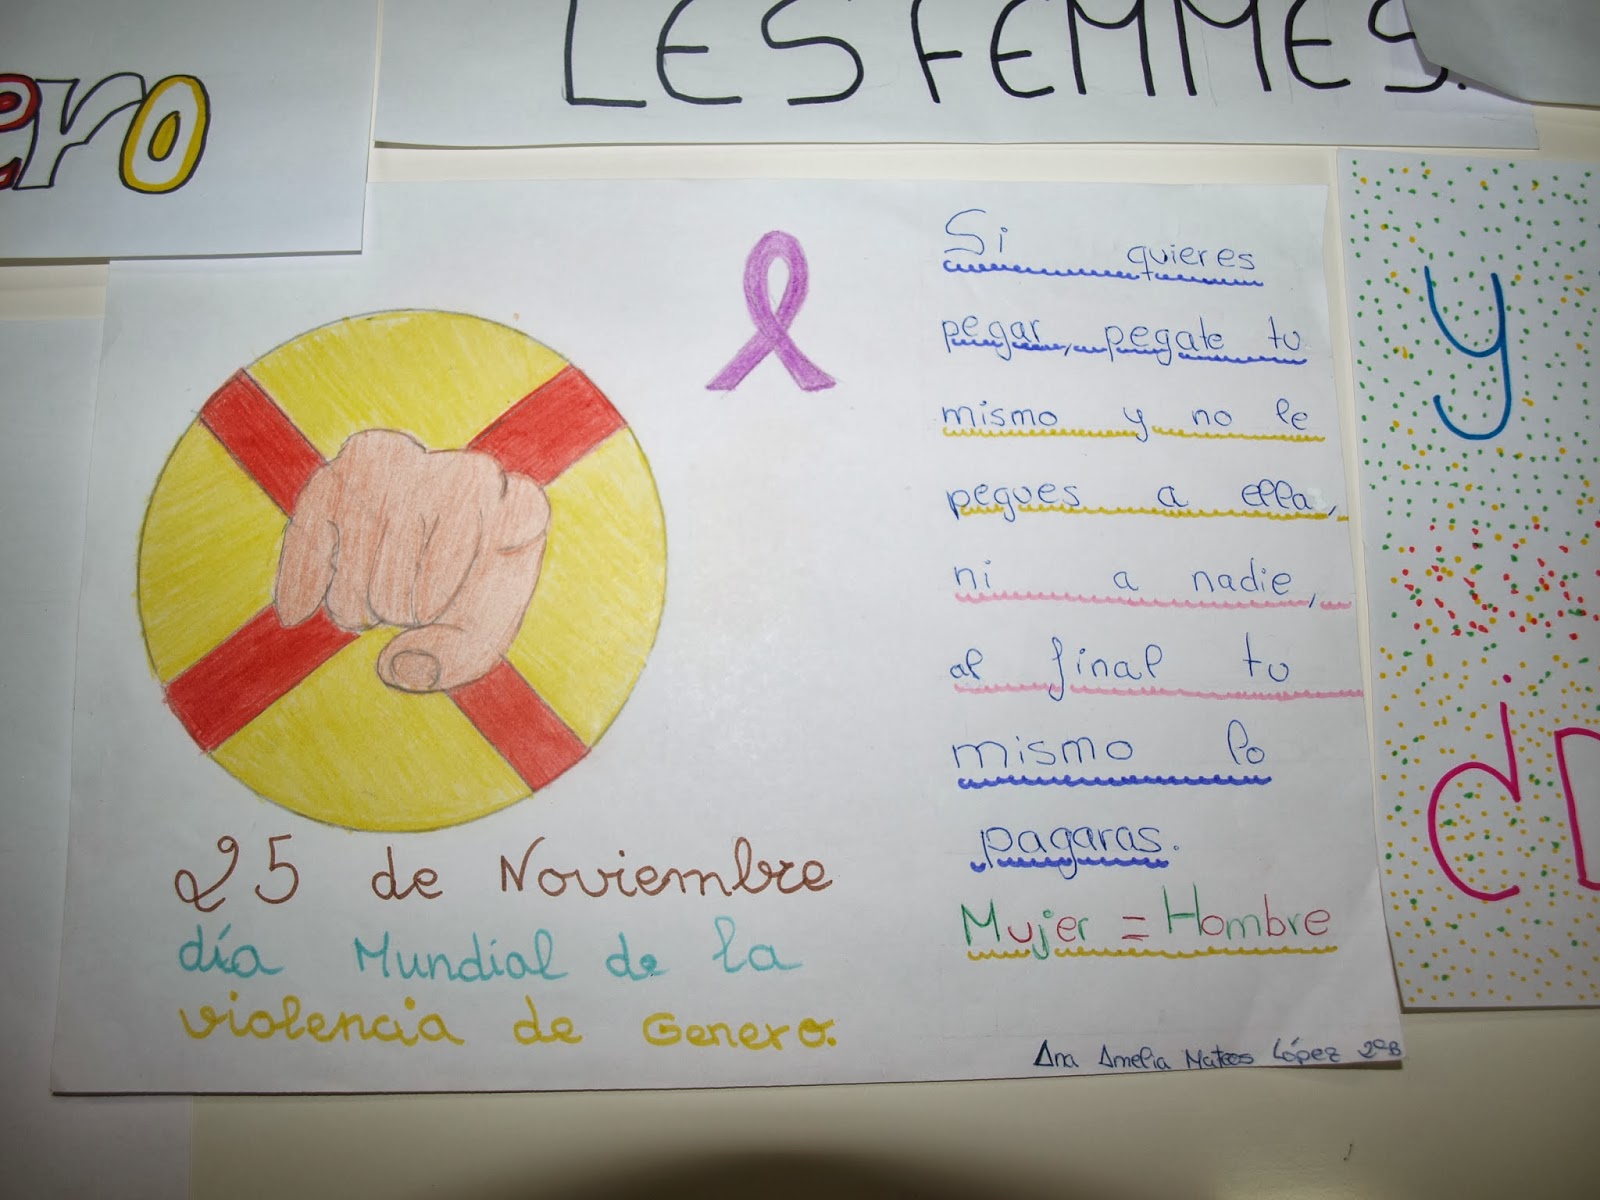 ero
LES FEMMES.
Si quieres
pegar, pegate tu
mismo y no le
pegues a ella,
ni a nadie,
al final tu
mismo lo
pagaras.
Mujer = Hombre
25 de Noviembre
día Mundial de la
violencia de Genero.
Ana Amelia Mateos López 2ºB
y
d